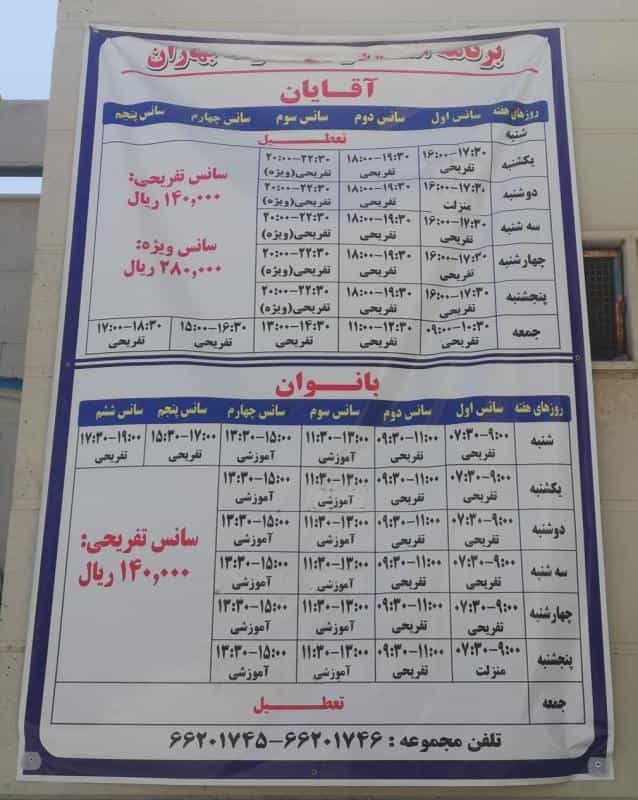 برنامه بهاران
آقایان
روزهای هفته سانس اول سانس دوم سانس سوم سانس چهارم سانس پنجم
شنبه تعطیل
یکشنبه ۱۶:۰۰-۱۷:۳۰ تفریحی ۱۸:۰۰-۱۹:۳۰ تفریحی ۲۰:۰۰-۲۲:۳۰ تفریحی(ویژه)
دوشنبه ۱۶:۰۰-۱۷:۳۰ منزلت ۱۸:۰۰-۱۹:۳۰ تفریحی ۲۰:۰۰-۲۲:۳۰ تفریحی(ویژه)
سه شنبه ۱۶:۰۰-۱۷:۳۰ تفریحی ۱۸:۰۰-۱۹:۳۰ تفریحی ۲۰:۰۰-۲۲:۳۰ تفریحی(ویژه)
چهارشنبه ۱۶:۰۰-۱۷:۳۰ تفریحی ۱۸:۰۰-۱۹:۳۰ تفریحی ۲۰:۰۰-۲۲:۳۰ تفریحی(ویژه)
پنجشنبه ۱۶:۰۰-۱۷:۳۰ تفریحی ۱۸:۰۰-۱۹:۳۰ تفریحی ۲۰:۰۰-۲۲:۳۰ تفریحی(ویژه)
سانس تفریحی:
۱۴۰,۰۰۰ ریال
سانس ویژه:
۲۸۰,۰۰۰ ریال
جمعه ۰۹:۰۰-۱۰:۳۰ تفریحی ۱۱:۰۰-۱۲:۳۰ تفریحی ۱۳:۰۰-۱۴:۳۰ تفریحی ۱۵:۰۰-۱۶:۳۰ تفریحی ۱۷:۰۰-۱۸:۳۰ تفریحی
بانوان
روزهای هفته سانس اول سانس دوم سانس سوم سانس چهارم سانس پنجم سانس ششم
شنبه ۰۷:۳۰-۹:۰۰ تفریحی ۰۹:۳۰-۱۱:۰۰ تفریحی ۱۱:۳۰-۱۳:۰۰ آموزشی ۱۳:۳۰-۱۵:۰۰ آموزشی ۱۵:۳۰-۱۷:۰۰ تفریحی ۱۷:۳۰-۱۹:۰۰ تفریحی
یکشنبه ۰۷:۳۰-۹:۰۰ تفریحی ۰۹:۳۰-۱۱:۰۰ تفریحی ۱۱:۳۰-۱۳:۰۰ آموزشی ۱۳:۳۰-۱۵:۰۰ آموزشی
دوشنبه ۰۷:۳۰-۹:۰۰ تفریحی ۰۹:۳۰-۱۱:۰۰ تفریحی ۱۱:۳۰-۱۳:۰۰ آموزشی ۱۳:۳۰-۱۵:۰۰ آموزشی
سه شنبه ۰۷:۳۰-۹:۰۰ تفریحی ۰۹:۳۰-۱۱:۰۰ تفریحی ۱۱:۳۰-۱۳:۰۰ آموزشی ۱۳:۳۰-۱۵:۰۰ آموزشی
چهارشنبه ۰۷:۳۰-۹:۰۰ تفریحی ۰۹:۳۰-۱۱:۰۰ تفریحی ۱۱:۳۰-۱۳:۰۰ آموزشی ۱۳:۳۰-۱۵:۰۰ آموزشی
پنجشنبه ۰۷:۳۰-۹:۰۰ منزلت ۰۹:۳۰-۱۱:۰۰ تفریحی ۱۱:۳۰-۱۳:۰۰ آموزشی ۱۳:۳۰-۱۵:۰۰ آموزشی
سانس تفریحی:
۱۴۰,۰۰۰ ریال
جمعه تعطیل
تلفن مجموعه : ۶۶۲۰۱۷۴۶-۶۶۲۰۱۷۴۵